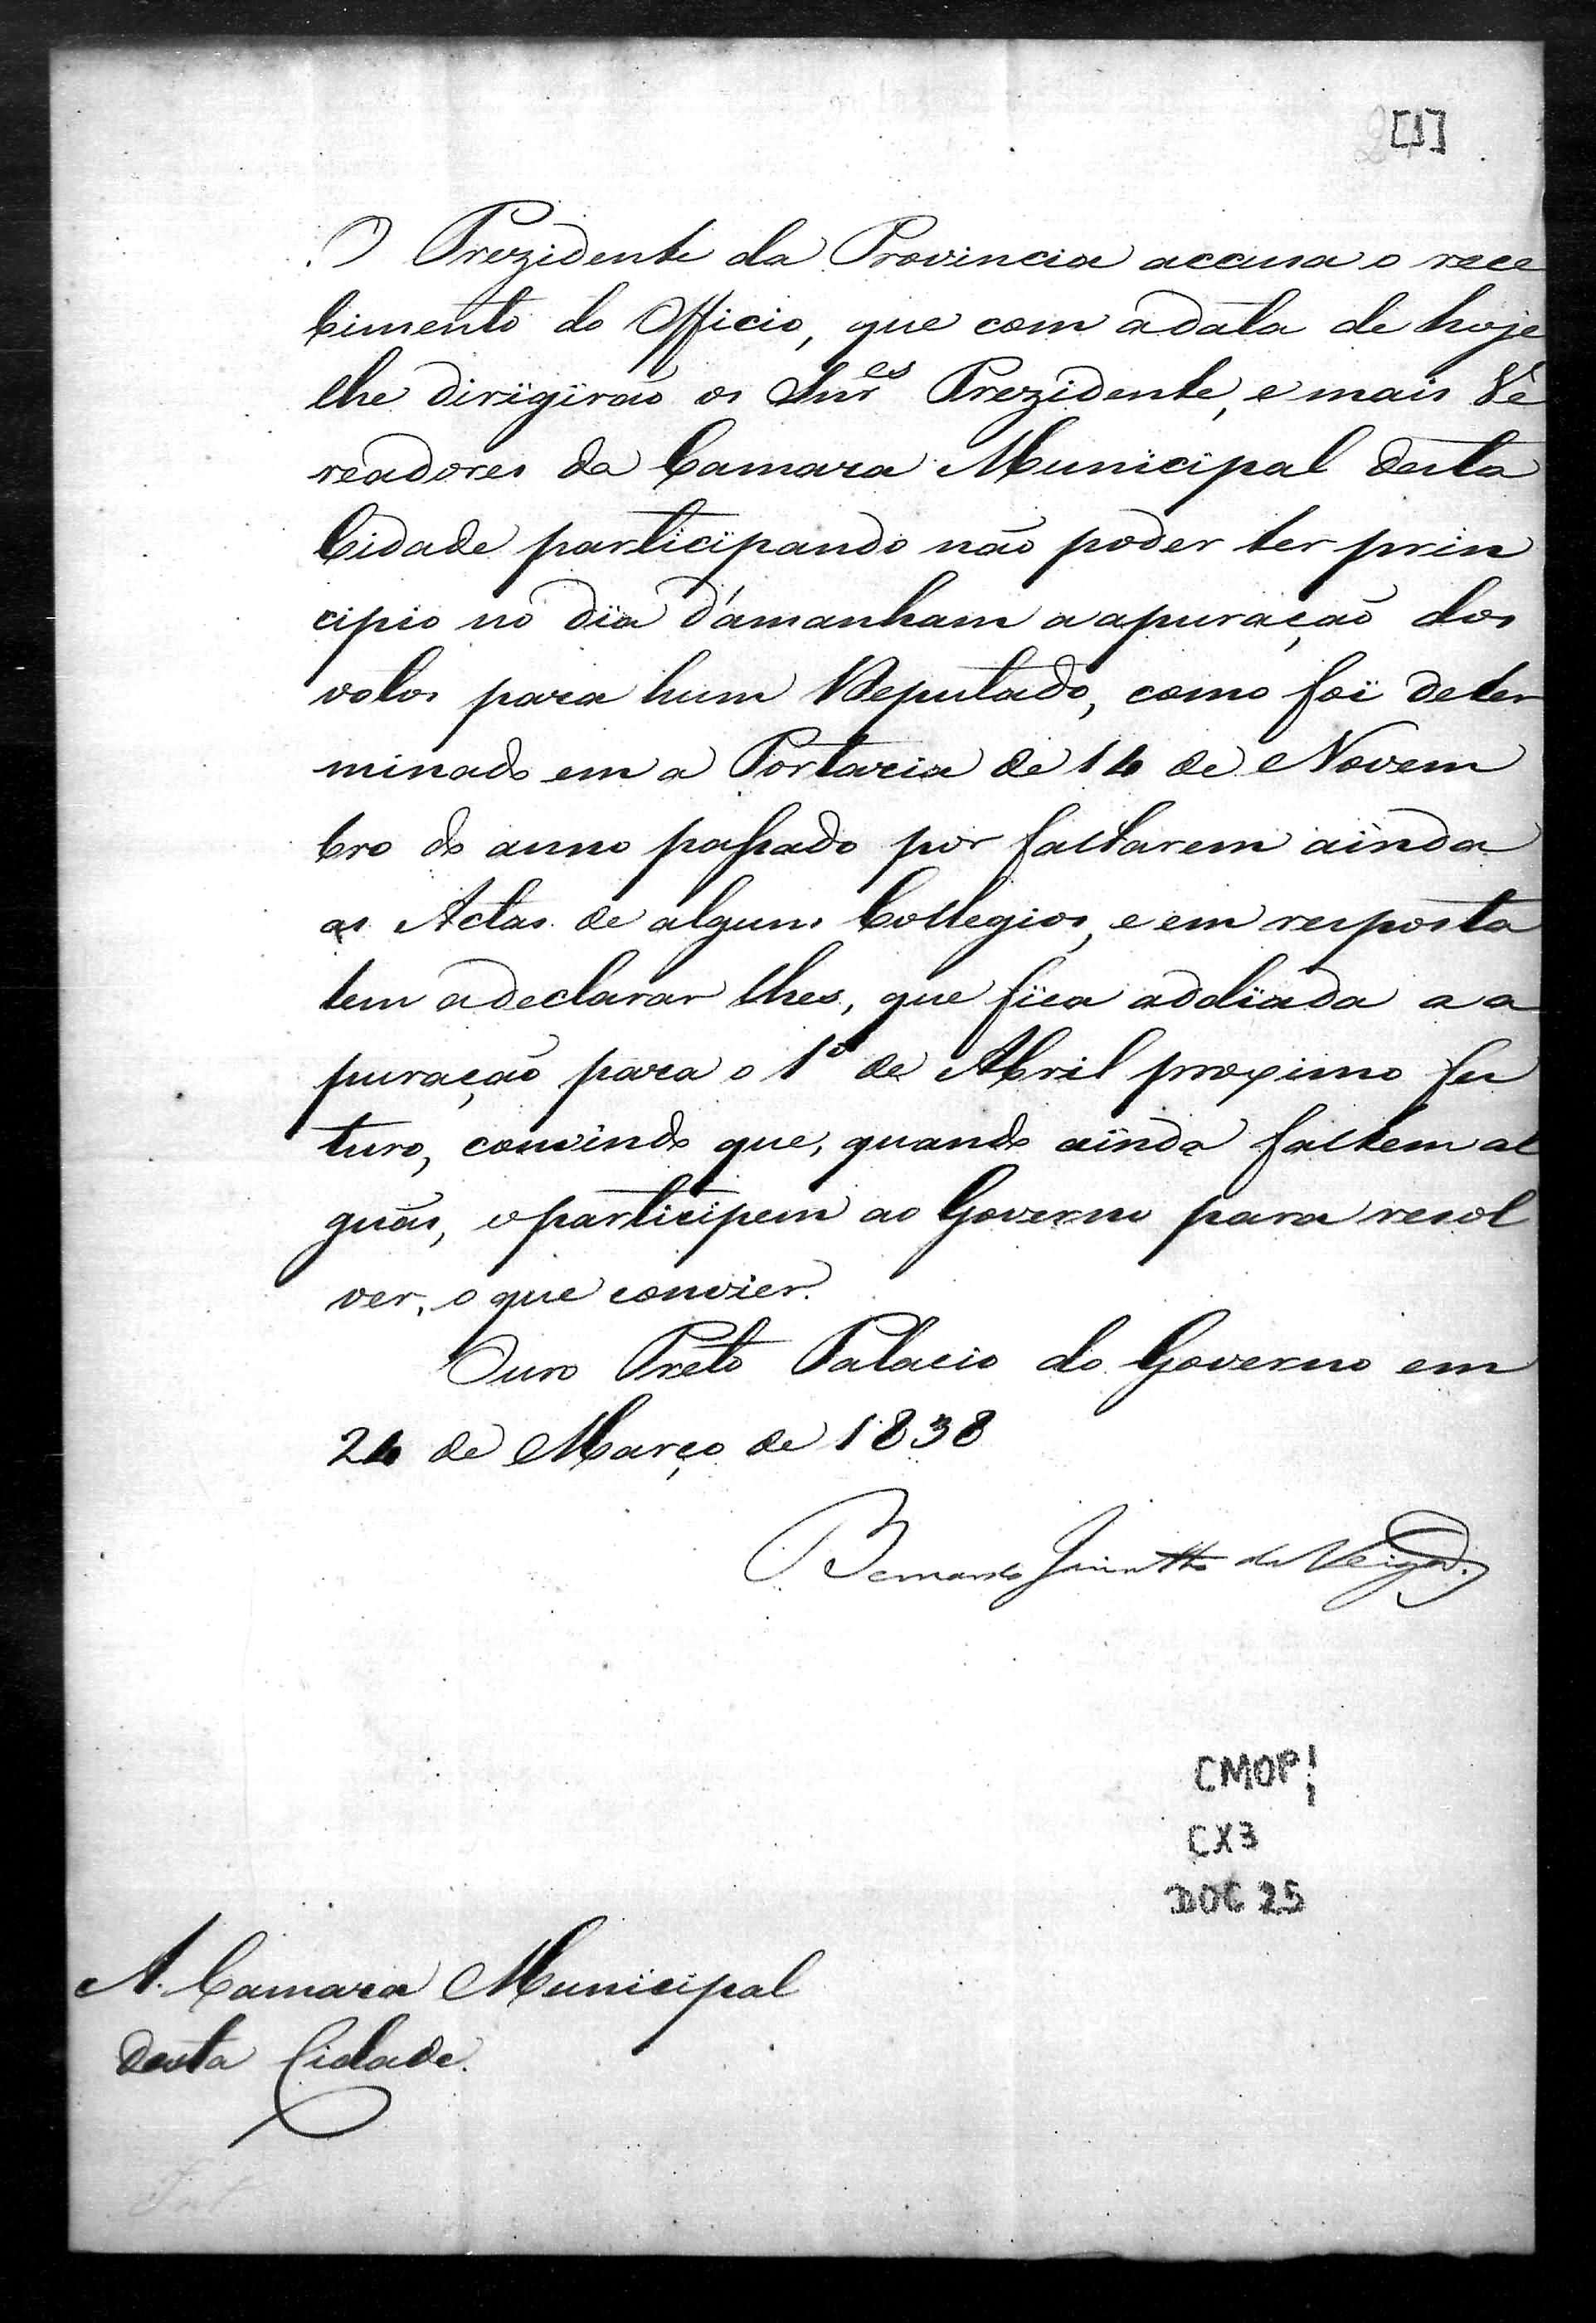 [1]
O Prezidente da Provincia accusa o rece
bimento do Officio, que com a data de hoje
lhe dirigirão os Snr.es Prezidente, e mais Ve
readores da Camara Municipal desta
Cidade participando não poder ter prin
cipio no dia d'amanham a apuração dos
votos para hum Deputado, como foi deter
minado em a Portaria de 14 de Novem
bro do anno passado por faltarem ainda
as Actas de alguns Collegios, e em resposta
tem a declarar lhes, que fica addiada a a
puração para o 1º de Abril proximo fu
turo, convindo que, quando ainda faltem al
guãs, o participem ao Governo para resol
ver, o que convier.
Ouro Preto Palacio do Governo em
24 de Março de 1838
Bernardo Jacintho da Veiga
CMOP
CX3
DOC 25
A Camara Municipal
desta Cidade.